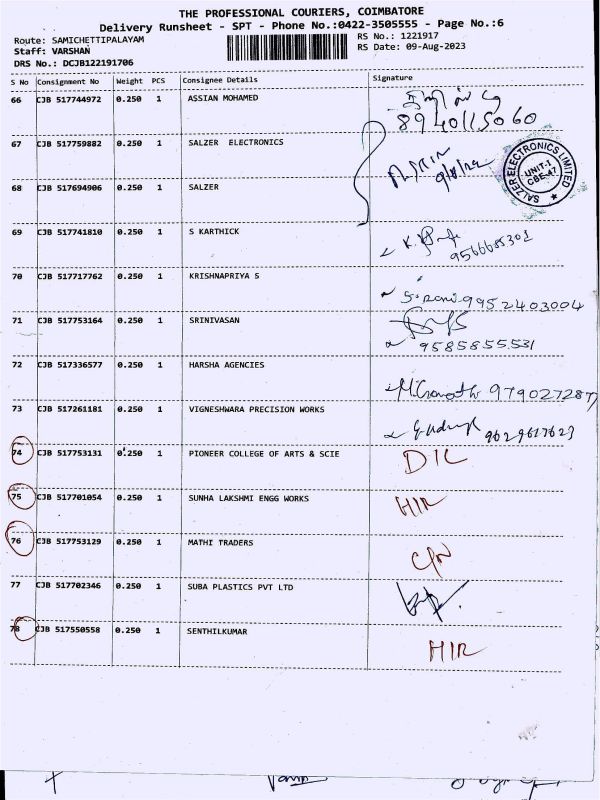 THE PROFESSIONAL COURIERS, COIMBATORE
Delivery Runsheet - SPT - Phone No.:0422-3505555 - Page No.:6
Route: SAMICHETTIPALAYAM RS No.: 1221917
Staff: VARSHAN RS Date: 09-Aug-2023
DRS No.: DCJB122191706
S No Consignment No Weight PCS Consignee Details Signature
66 CJB 517744972 0.250 1 ASSIAN MOHAMED
8940115060
67 CJB 517759882 0.250 1 SALZER ELECTRONICS
SALZER ELECTRONICS LIMITED
UNIT-1
CBE-47
68 CJB 517694906 0.250 1 SALZER
69 CJB 517741810 0.250 1 S KARTHICK
9566685302
70 CJB 517717762 0.250 1 KRISHNAPRIYA S
S. Rani 9952403004
71 CJB 517753164 0.250 1 SRINIVASAN
9585855531
72 CJB 517336577 0.250 1 HARSHA AGENCIES
9790272877
73 CJB 517261181 0.250 1 VIGNESHWARA PRECISION WORKS
9629617623
74 CJB 517753131 0.250 1 PIONEER COLLEGE OF ARTS & SCIE DIL
75 CJB 517701054 0.250 1 SUNHA LAKSHMI ENGG WORKS HIR
76 CJB 517753129 0.250 1 MATHI TRADERS
77 CJB 517702346 0.250 1 SUBA PLASTICS PVT LTD
78 CJB 517550558 0.250 1 SENTHILKUMAR HIR